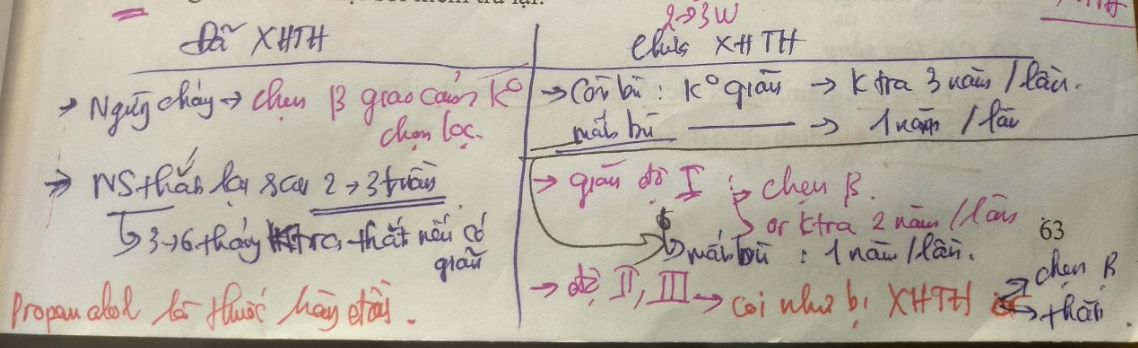 Đã XHTH
→ Ngừng chảy → chẹn β giao cảm K° chọn lọc.
→ NS thắt lại sau 2 → 3 tuần
↳ 3 → 6 tháng Ktra thắt nếu có giãn
Propanalol là thuốc hàng đầu.
2→3W
Chưa XHTH
→ Còn bù : K° giãn → Ktra 3 năm / lần.
mất bù → 1 năm / lần
→ giãn độ I : → chẹn β.
or Ktra 2 năm / lần
↳ mất bù : 1 năm / lần.
→ độ II, III → coi như bị XHTH
→ chẹn β
→ thắt.
63